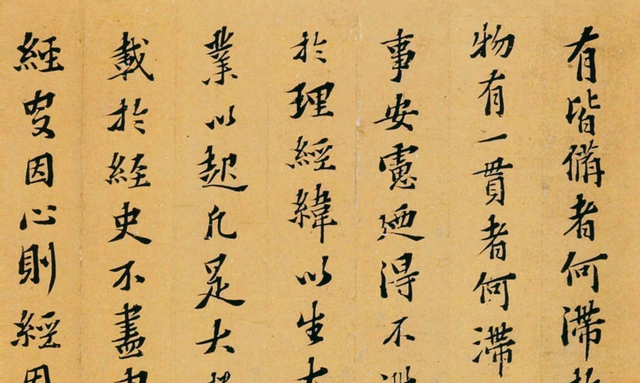 有皆備者何滯
物有一貫者何滯
事安慮廼得不
於理經緯以生
業以起凡是大
載於経史不盡
經史因心則經因